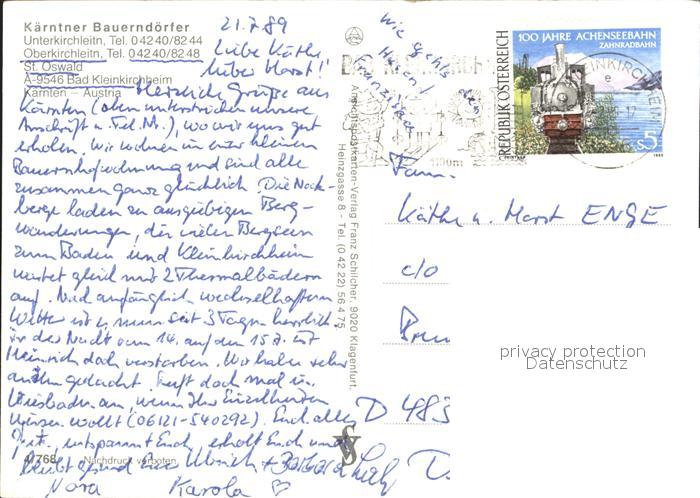 Kärntner Bauerndörfer
Unterkirchleitn, Tel. 0 42 40/82 44
Oberkirchleitn, Tel. 0 42 40/82 48
St. Oswald
A-9546 Bad Kleinkirchheim
Kärnten – Austria
21.7.89
Liebe Käthe
lieber Horst!
Herzliche Grüße aus
Kärnten (oben unterstrichen unsere
Anschrift u. Tel. Nr.), wo wir uns gut
erholen. Wir wohnen in einer kleinen
Bauernhofwohnung und sind alle
zusammen ganz glücklich. Die Nock-
berge laden zu ausgiebigen Berg-
wanderungen, die vielen Bergseen
zum Baden und Kleinkirchheim
wartet gleich mit 2 Thermalbädern
auf. Nach anfänglich wechselhaftem
Wetter ist es nun seit 3 Tagen herrlich.
In der Nacht vom 14. auf den 15.7. ist
Heinrich doch verstorben. Wir haben sehr
an ihn gedacht. Ruft doch mal in
Wiesbaden an, wenn Ihr Einzelheiten
wissen wollt (06121-540292). Euch alles
Gute, entspannt Euch, erholt Euch und
bleibt gesund Eure Ulrich + Barbara
Nora Karola
4/768 Nachdruck verboten
Ansichtspostkarten-Verlag Franz Schilcher, 9020 Klagenfurt,
Heinzgasse 8 - Tel. (0 42 22) 56 4 75
Wie geht's den
Hasen?
Franziska
1100m
100 JAHRE ACHENSEEBAHN
ZAHNRADBAHN
REPUBLIK ÖSTERREICH
S5
1989
Fam.
Käthe u. Horst ENGE
c/o
D 483
privacy protection
Datenschutz